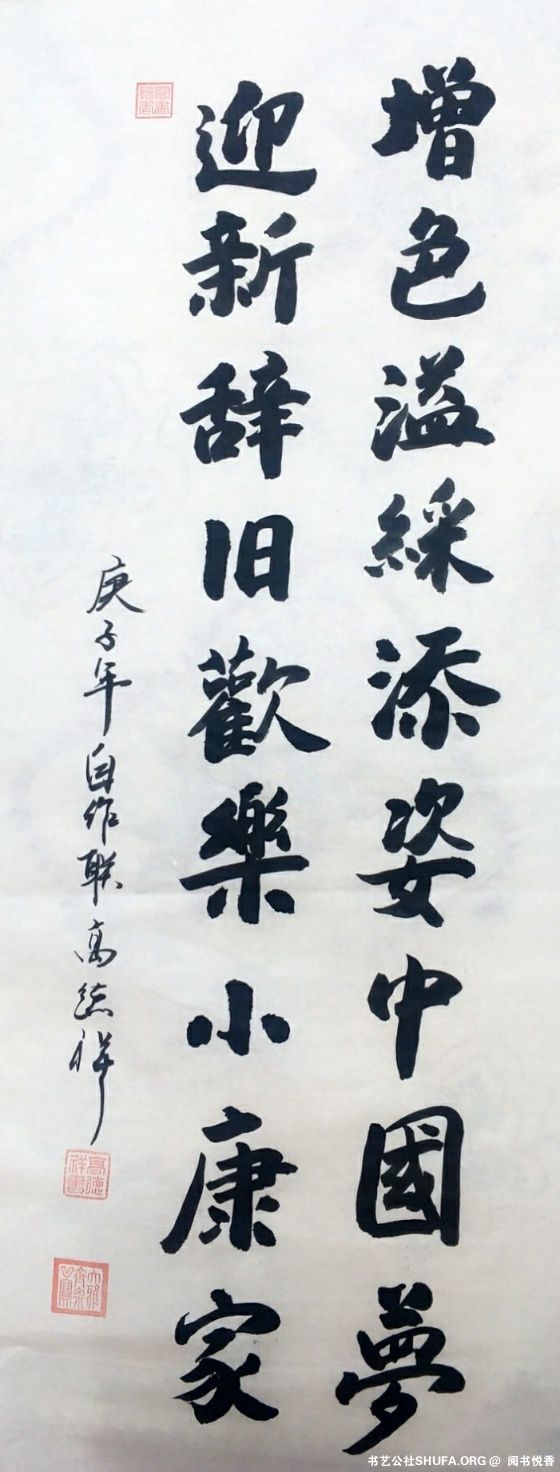 增色溢綵添姿中國夢
迎新辞旧歡樂小康家
庚子年自作联高德祥
高德祥書
书艺公社SHUFA.ORG @ 阅书悦香